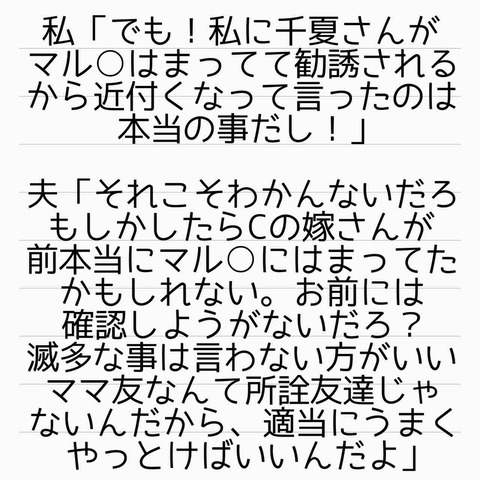 私「でも！私に千夏さんが
マル〇はまってて勧誘される
から近付くなって言ったのは
本当の事だし！」
夫「それこそわかんないだろ
もしかしたらCの嫁さんが
前本当にマル〇にはまってた
かもしれない。お前には
確認しようがないだろ？
滅多な事は言わない方がいい
ママ友なんて所詮友達じゃ
ないんだから、適当にうまく
やっとけばいいんだよ」